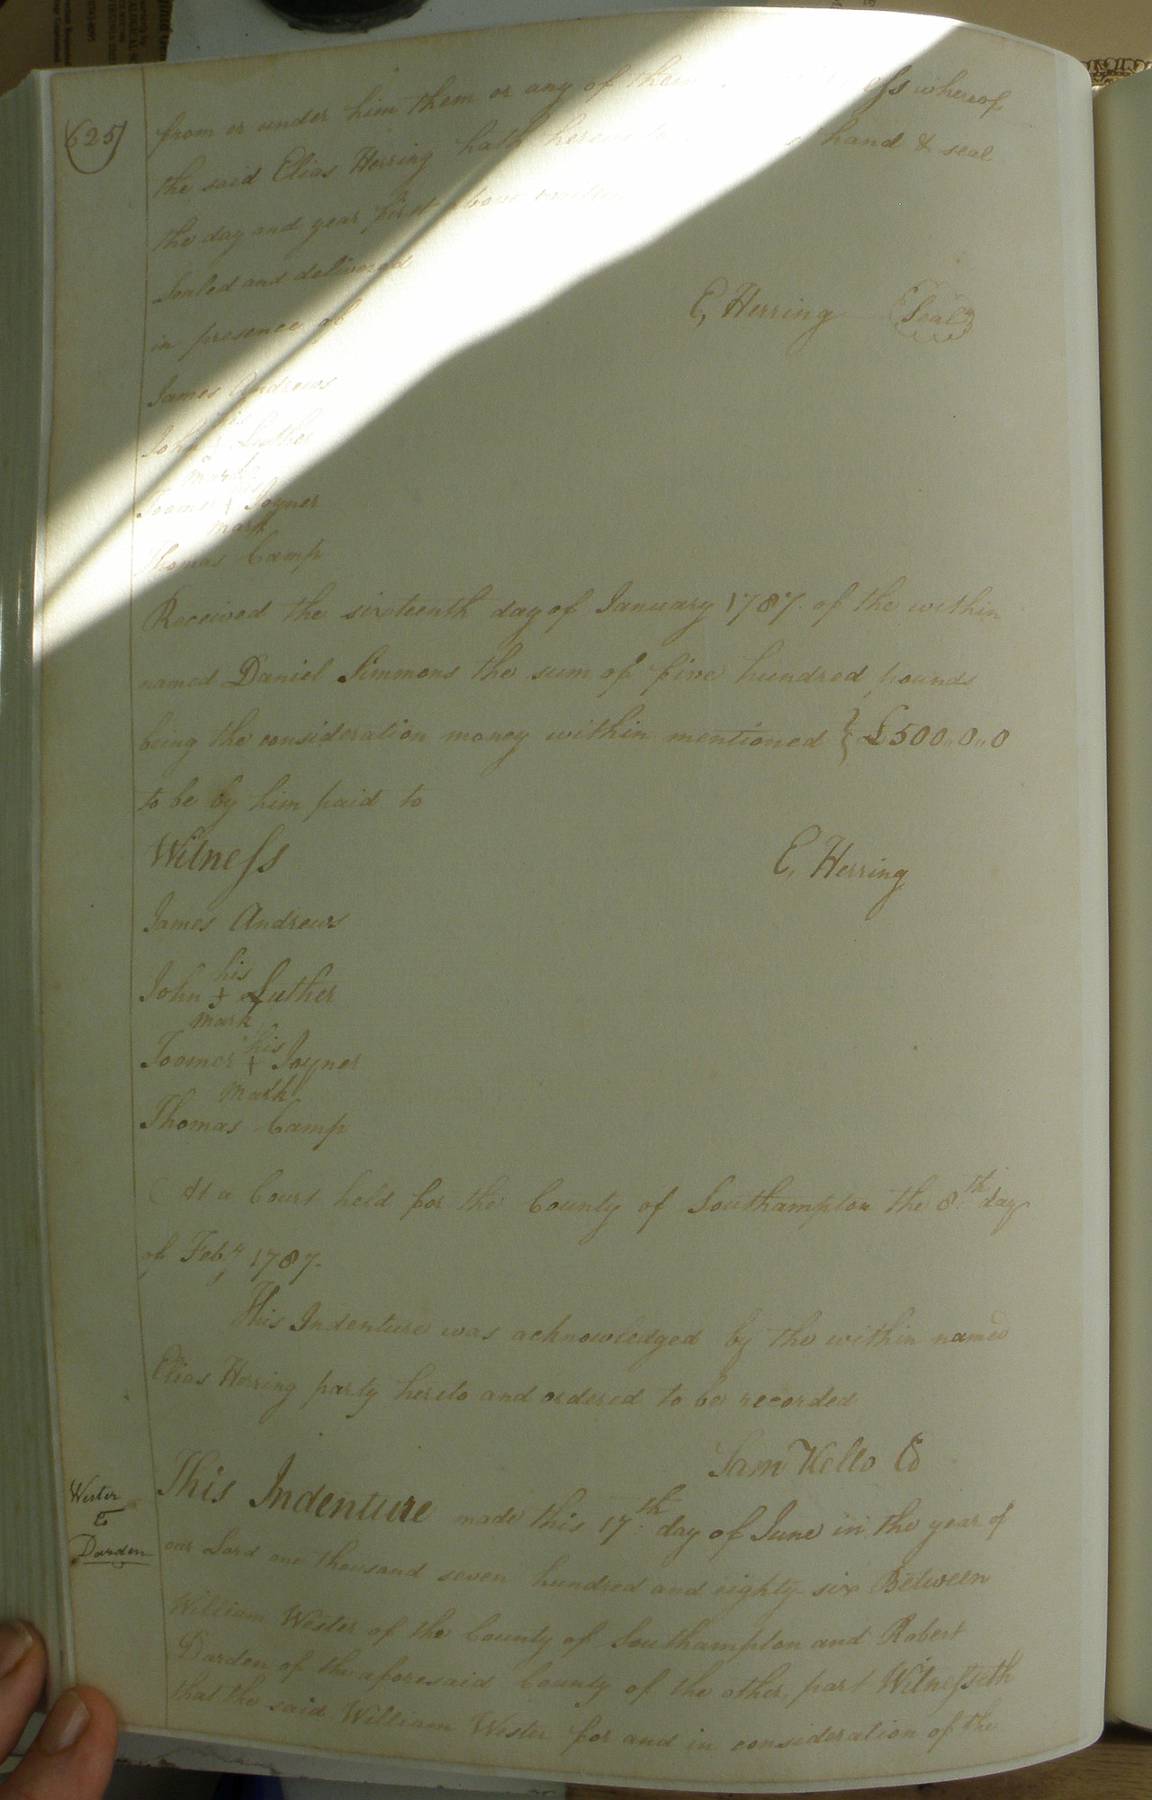 625
from or under him them or any of whereof
the said Elias Herring hath hand & seal
the day and year first above written
Sealed and delivered
in presence of
E, Herring Seal
James Andrews
his
John Luther
mark
Toomer + Joyner
mark
Thomas Camp
Received the sixteenth day of January 1787. of the within
named Daniel Simmons the sum of five hundred pounds
being the consideration money within mentioned } £500..0..0
to be by him paid to
Witness
E, Herring
James Andrews
his
John + Luther
mark
his
Toomer + Joyner
mark
Thomas Camp
At a Court held for the County of Southampton the 8th day
of Feby 1787.
This Indenture was acknowledged by the within named
Elias Herring party hereto and ordered to be recorded
Sam Kello
Wester
Darden
This Indenture made this 17th day of June in the year of
our Lord one thousand seven hundred and eighty six Between
William Wester of the County of Southampton and Robert
Darden of the aforesaid County of the other part Witnesseth
that the said William Wester for and in consideration of the